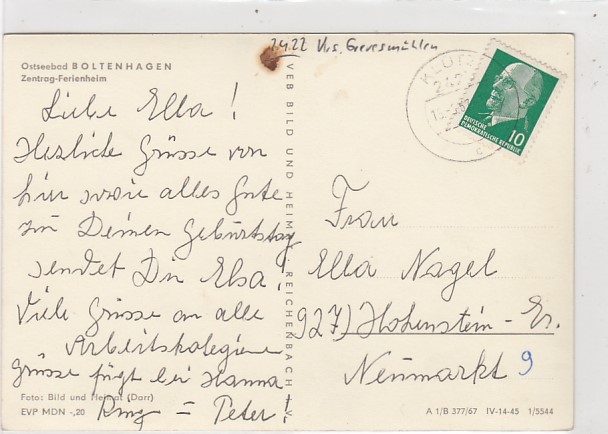 2422 Krs. Grevesmühlen
Ostseebad BOLTENHAGEN
Zentrag-Ferienheim
Liebe Ella!
Herzliche Grüsse von
hier sowie alles Gute
zu Deinen Geburtstag
sendet Dir Elsa!
Viele Grüsse an alle
Arbeitskolegiene
Grüsse fügt bei Hanna
Ring = Peter!
Foto: Bild und Heimat (Darr)
EVP MDN -,20
VEB BILD UND HEIMAT REICHENBACH I. V.
KLÜTZ
242
DEUTSCHE
DEMOKRATISCHE REPUBLIK
10
Frau
Ella Nagel
927) Hohenstein-Er.
Neumarkt 9
A 1/B 377/67 IV-14-45 1/5544